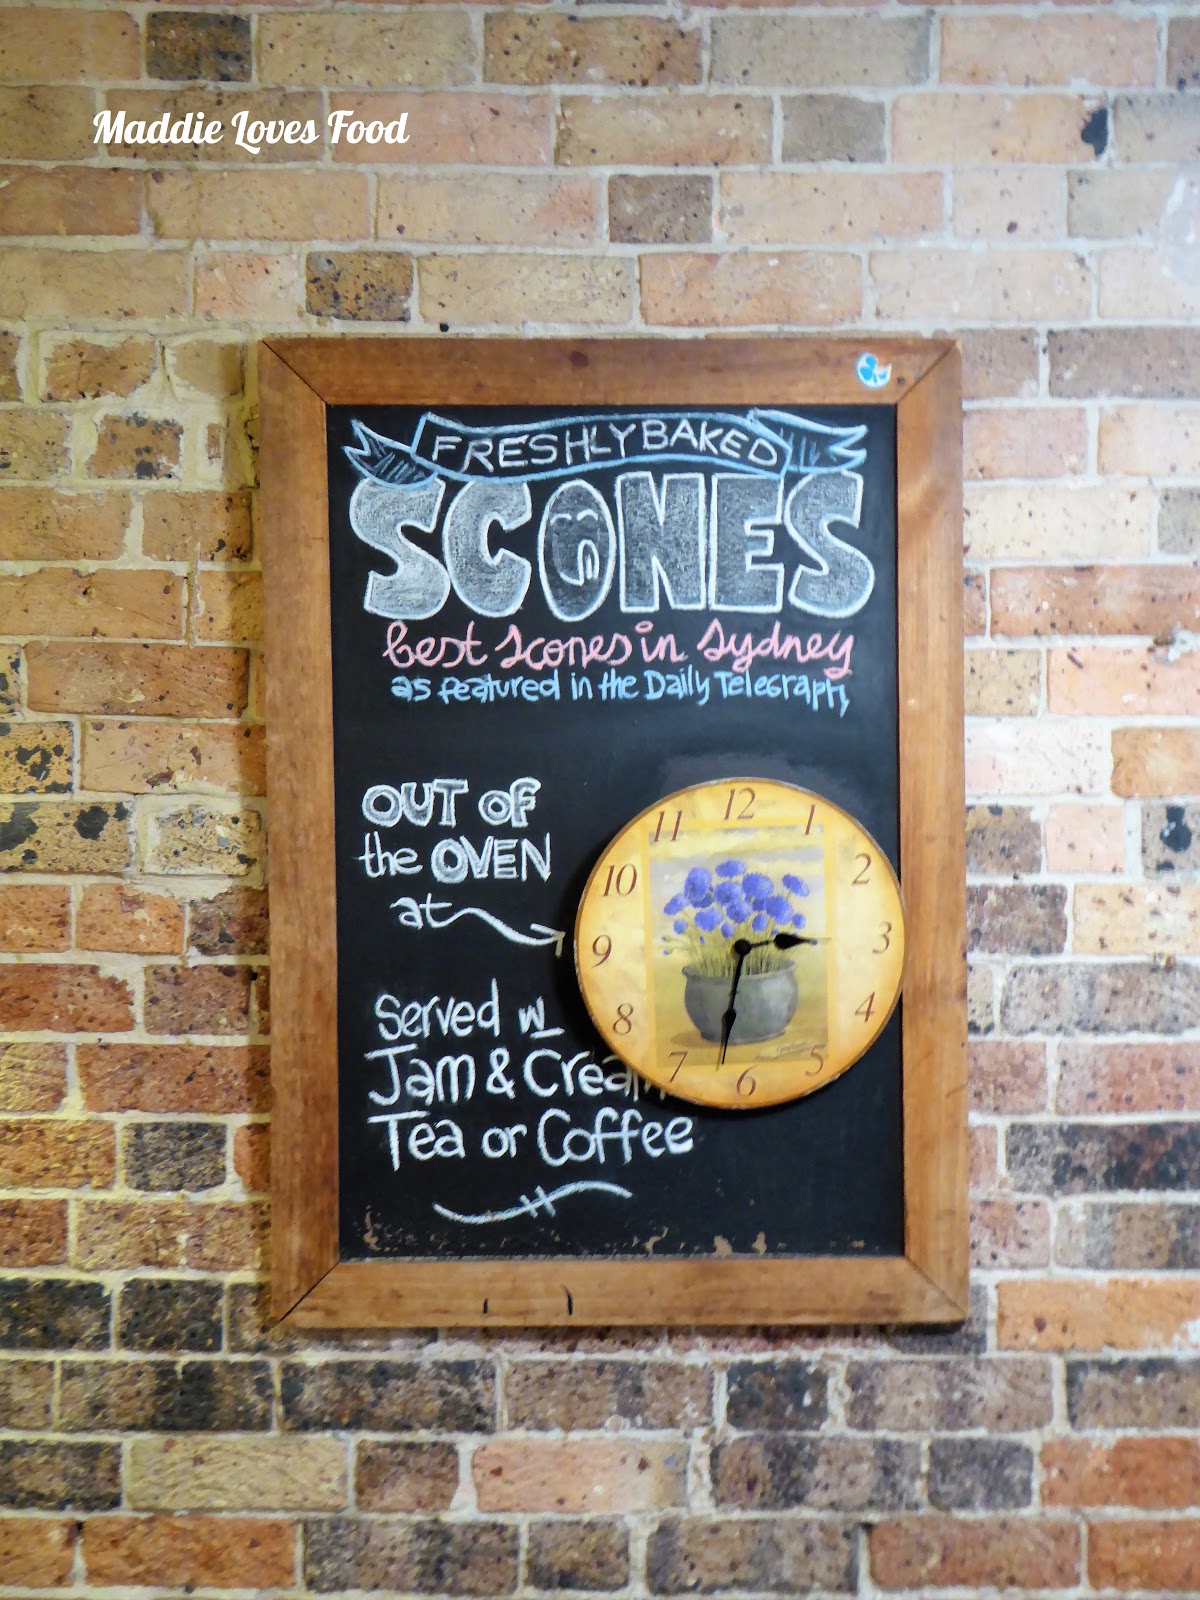 Maddie Loves Food
FRESHLY BAKED
SCONES
best scones in Sydney
as featured in the Daily Telegraph,
OUT OF
the OVEN
at
12
1
2
3
4
5
6
7
8
9
10
11
Served w/
Jam & Cream
Tea or Coffee